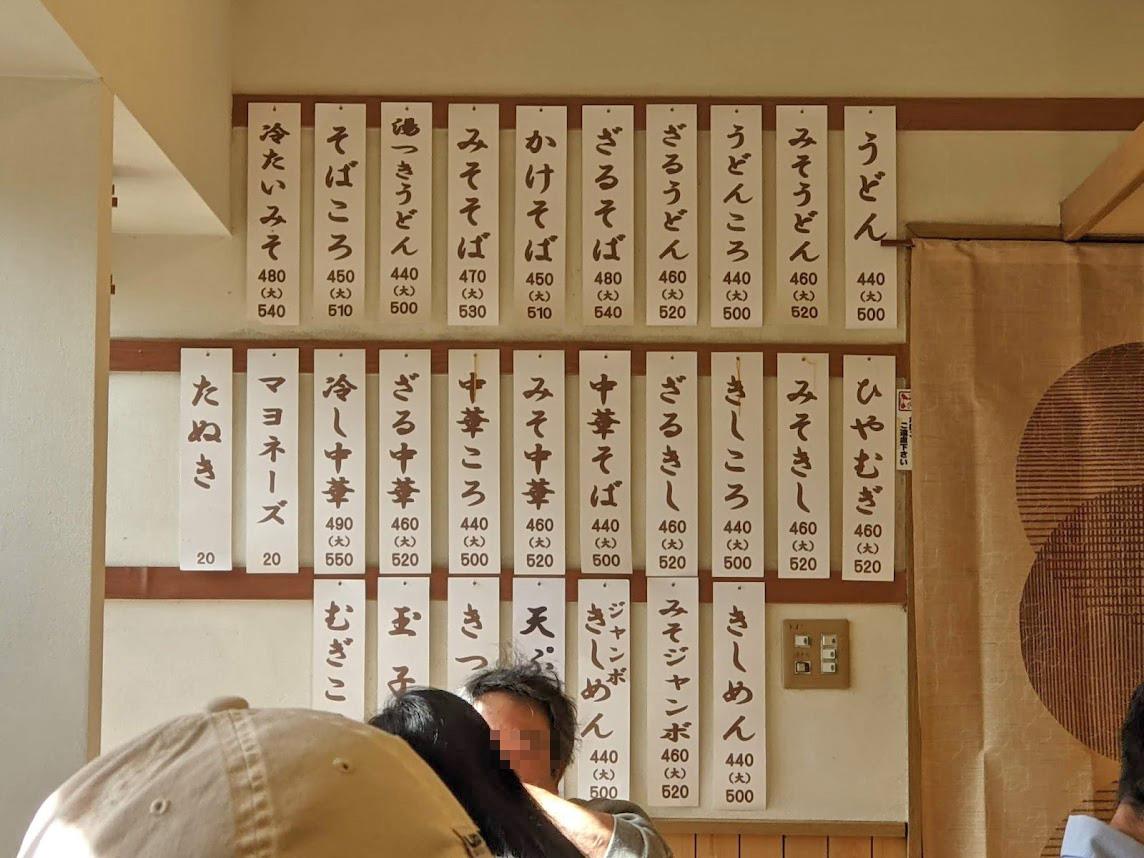 うどん
440
(大)
500
みそうどん
460
(大)
520
うどんころ
440
(大)
500
ざるうどん
460
(大)
520
ざるそば
480
(大)
540
かけそば
450
(大)
510
みそそば
470
(大)
530
湯つきうどん
440
(大)
500
そばころ
450
(大)
510
冷たいみそ
480
(大)
540
ひやむぎ
460
(大)
520
みそきし
460
(大)
520
きしころ
440
(大)
500
ざるきし
460
(大)
520
中華そば
440
(大)
500
みそ中華
460
(大)
520
中華ころ
440
(大)
500
ざる中華
460
(大)
520
冷し中華
490
(大)
550
マヨネーズ
20
たぬき
20
きしめん
440
(大)
500
みそジャンボ
460
(大)
520
ジャンボ
きしめん
440
(大)
500
天ぷ
きつ
玉子
むぎこ
ご遠慮下さい